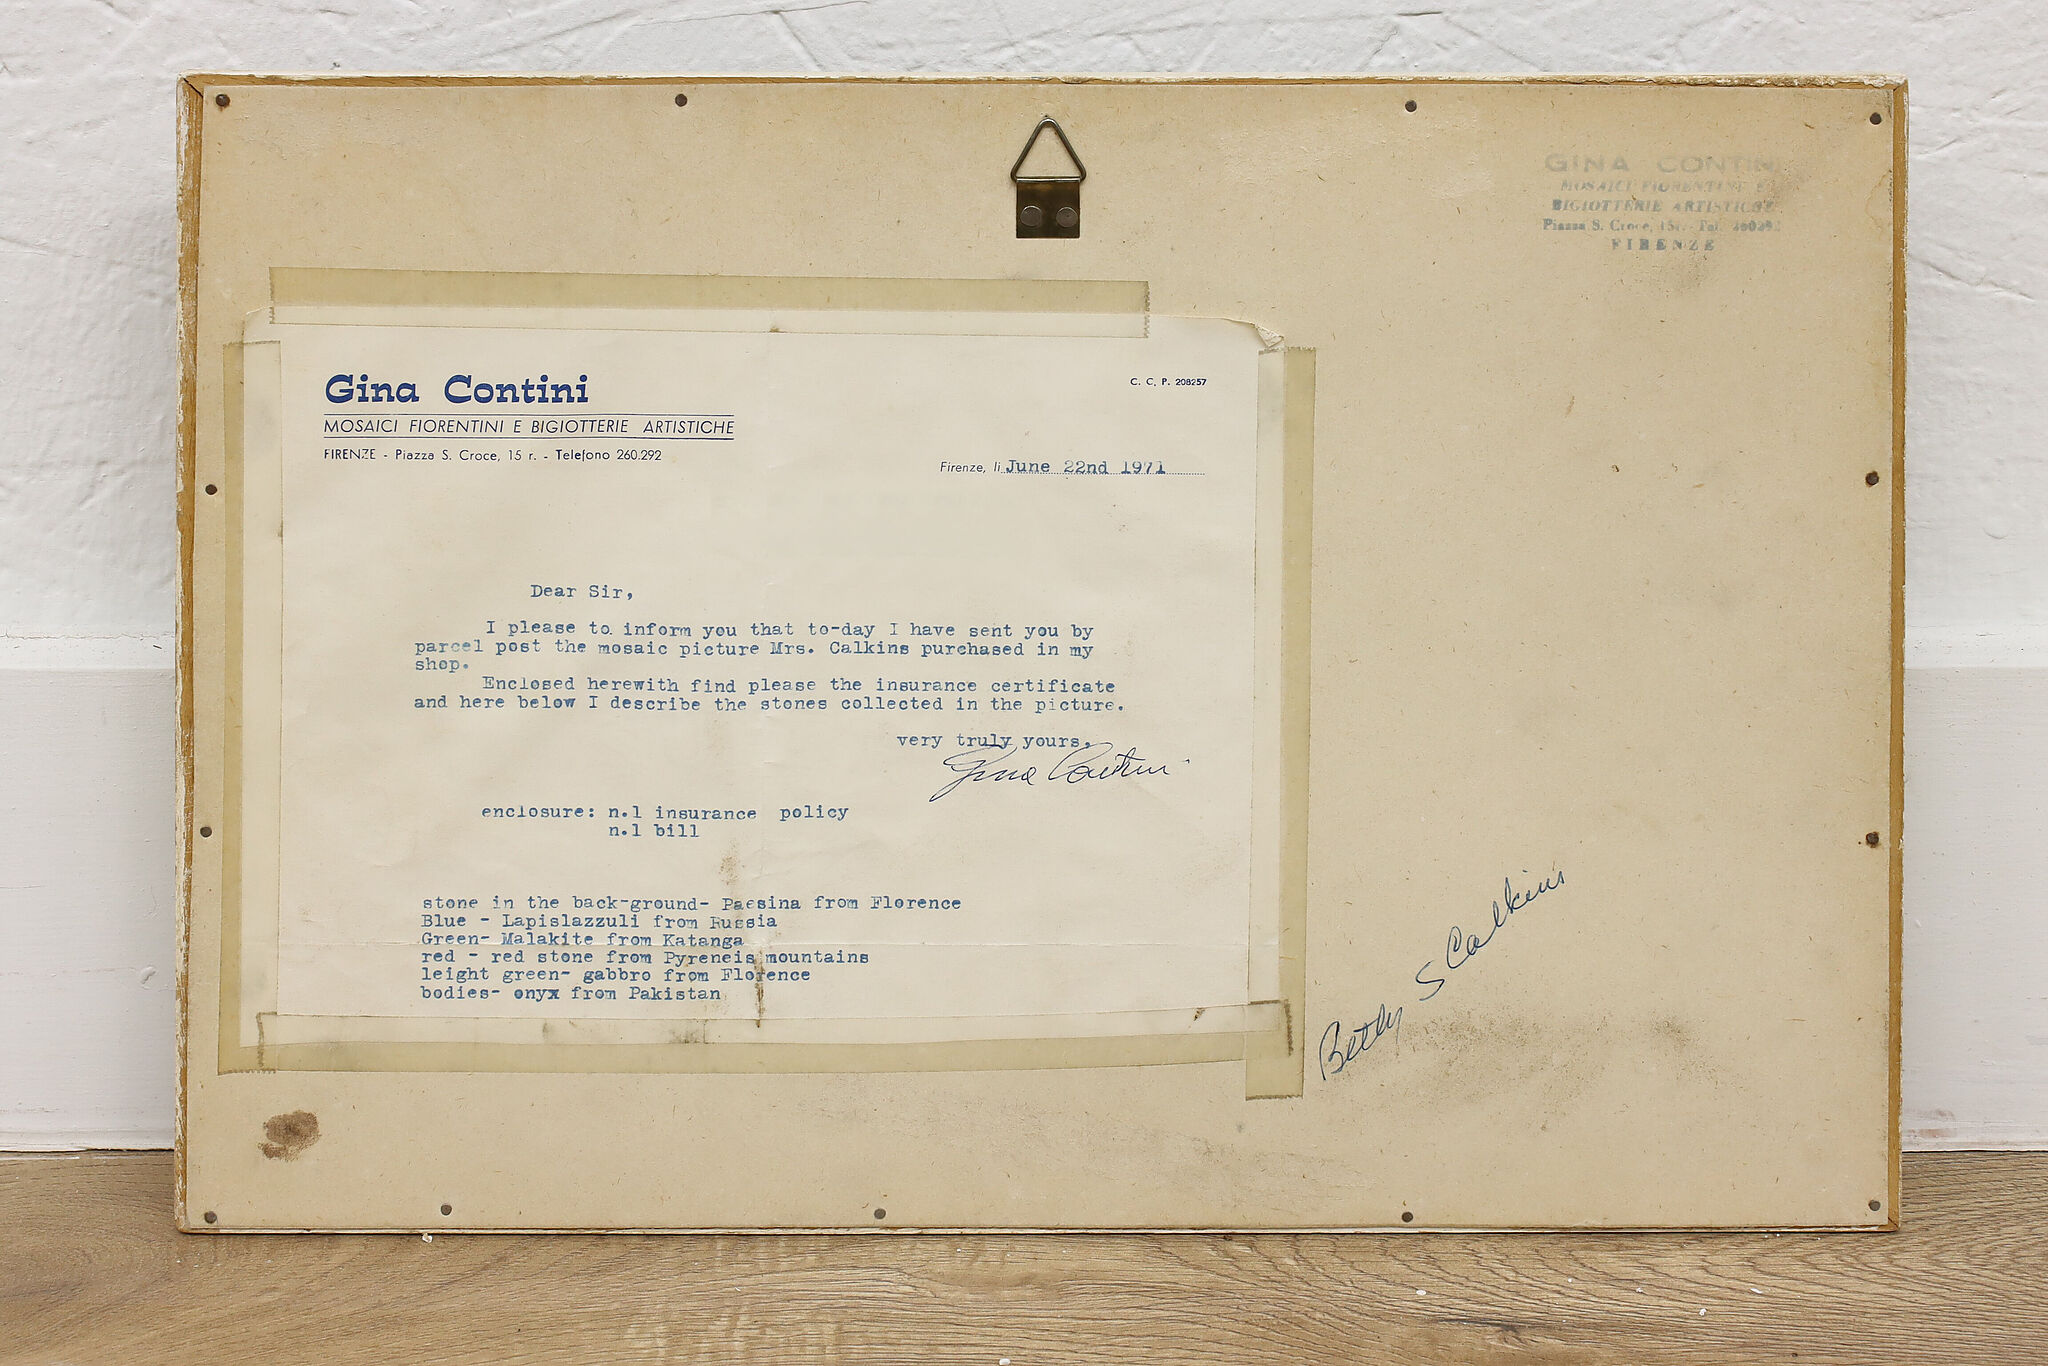 GINA CONTINI
MOSAICI FIORENTINI E
BIGIOTTERIE ARTISTICHE
Piazza S. Croce, 15 r. - Tel. 260292
FIRENZE
Gina Contini
C. C. P. 208257
MOSAICI FIORENTINI E BIGIOTTERIE ARTISTICHE
FIRENZE - Piazza S. Croce, 15 r. - Telefono 260.292
Firenze, li June 22nd 1971
Dear Sir,
I please to inform you that to-day I have sent you by
parcel post the mosaic picture Mrs. Calkins purchased in my
shop.
Enclosed herewith find please the insurance certificate
and here below I describe the stones collected in the picture.
very truly yours,
Gina Contini
enclosure: n.1 insurance policy
n.1 bill
stone in the back-ground- Paesina from Florence
Blue - Lapislazzuli from Russia
Green- Malakite from Katanga
red - red stone from Pyreneis mountains
leight green- gabbro from Florence
bodies- onyx from Pakistan
Betty S Calkins